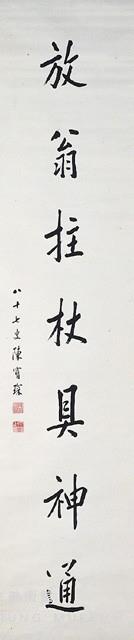 放翁拄杖具神通
八十七叟陳寶琛